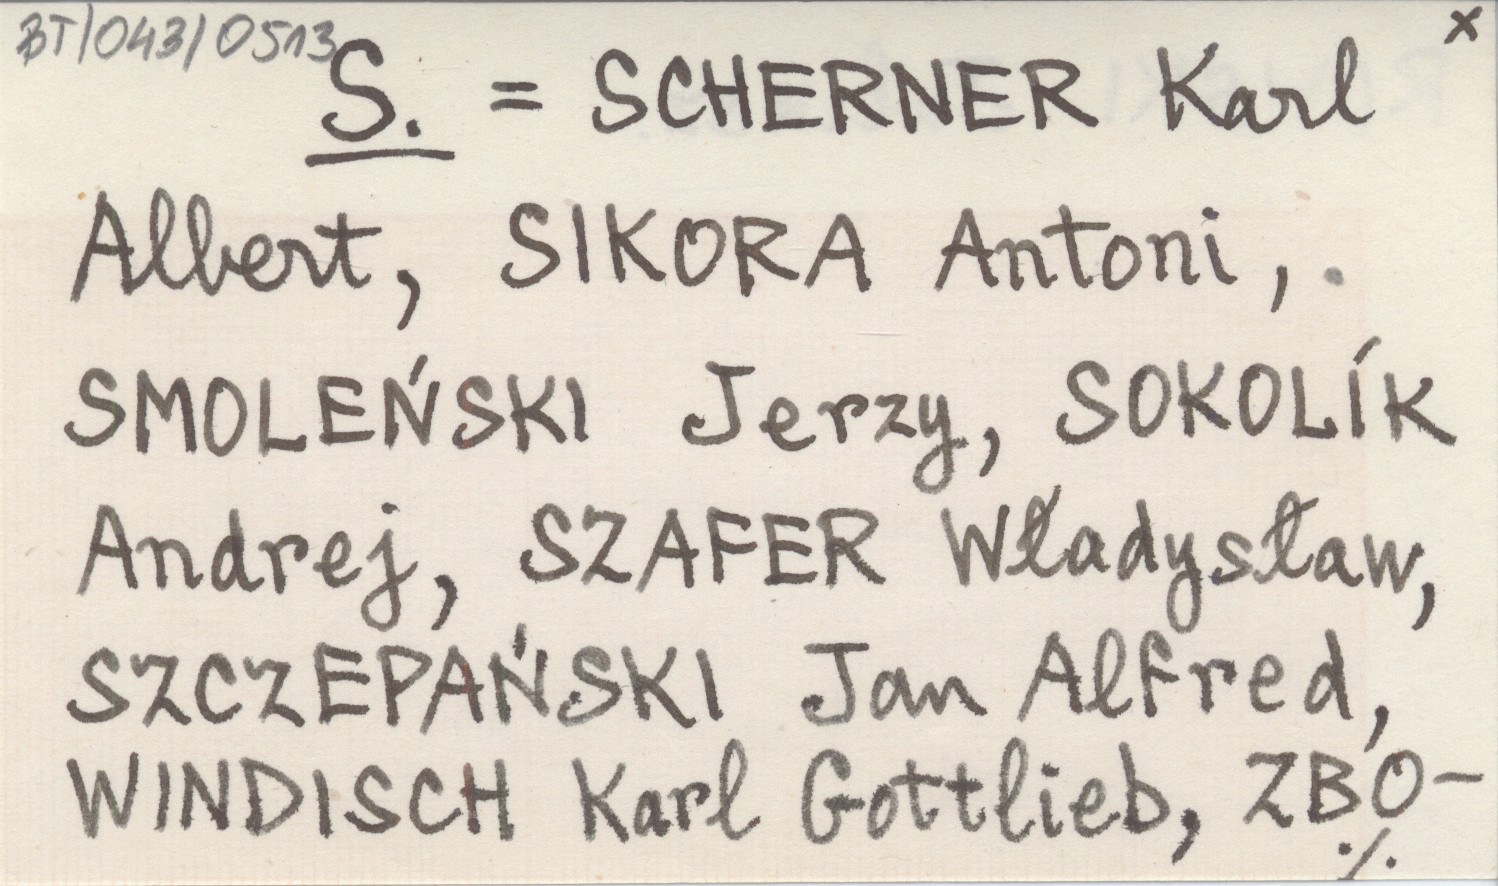 BT/043/0513
x
S. = SCHERNER Karl
Albert, SIKORA Antoni,
SMOLEŃSKI Jerzy, SOKOLÍK
Andrej, SZAFER Władysław,
SZCZEPAŃSKI Jan Alfred,
WINDISCH Karl Gottlieb, ZBO-
./.